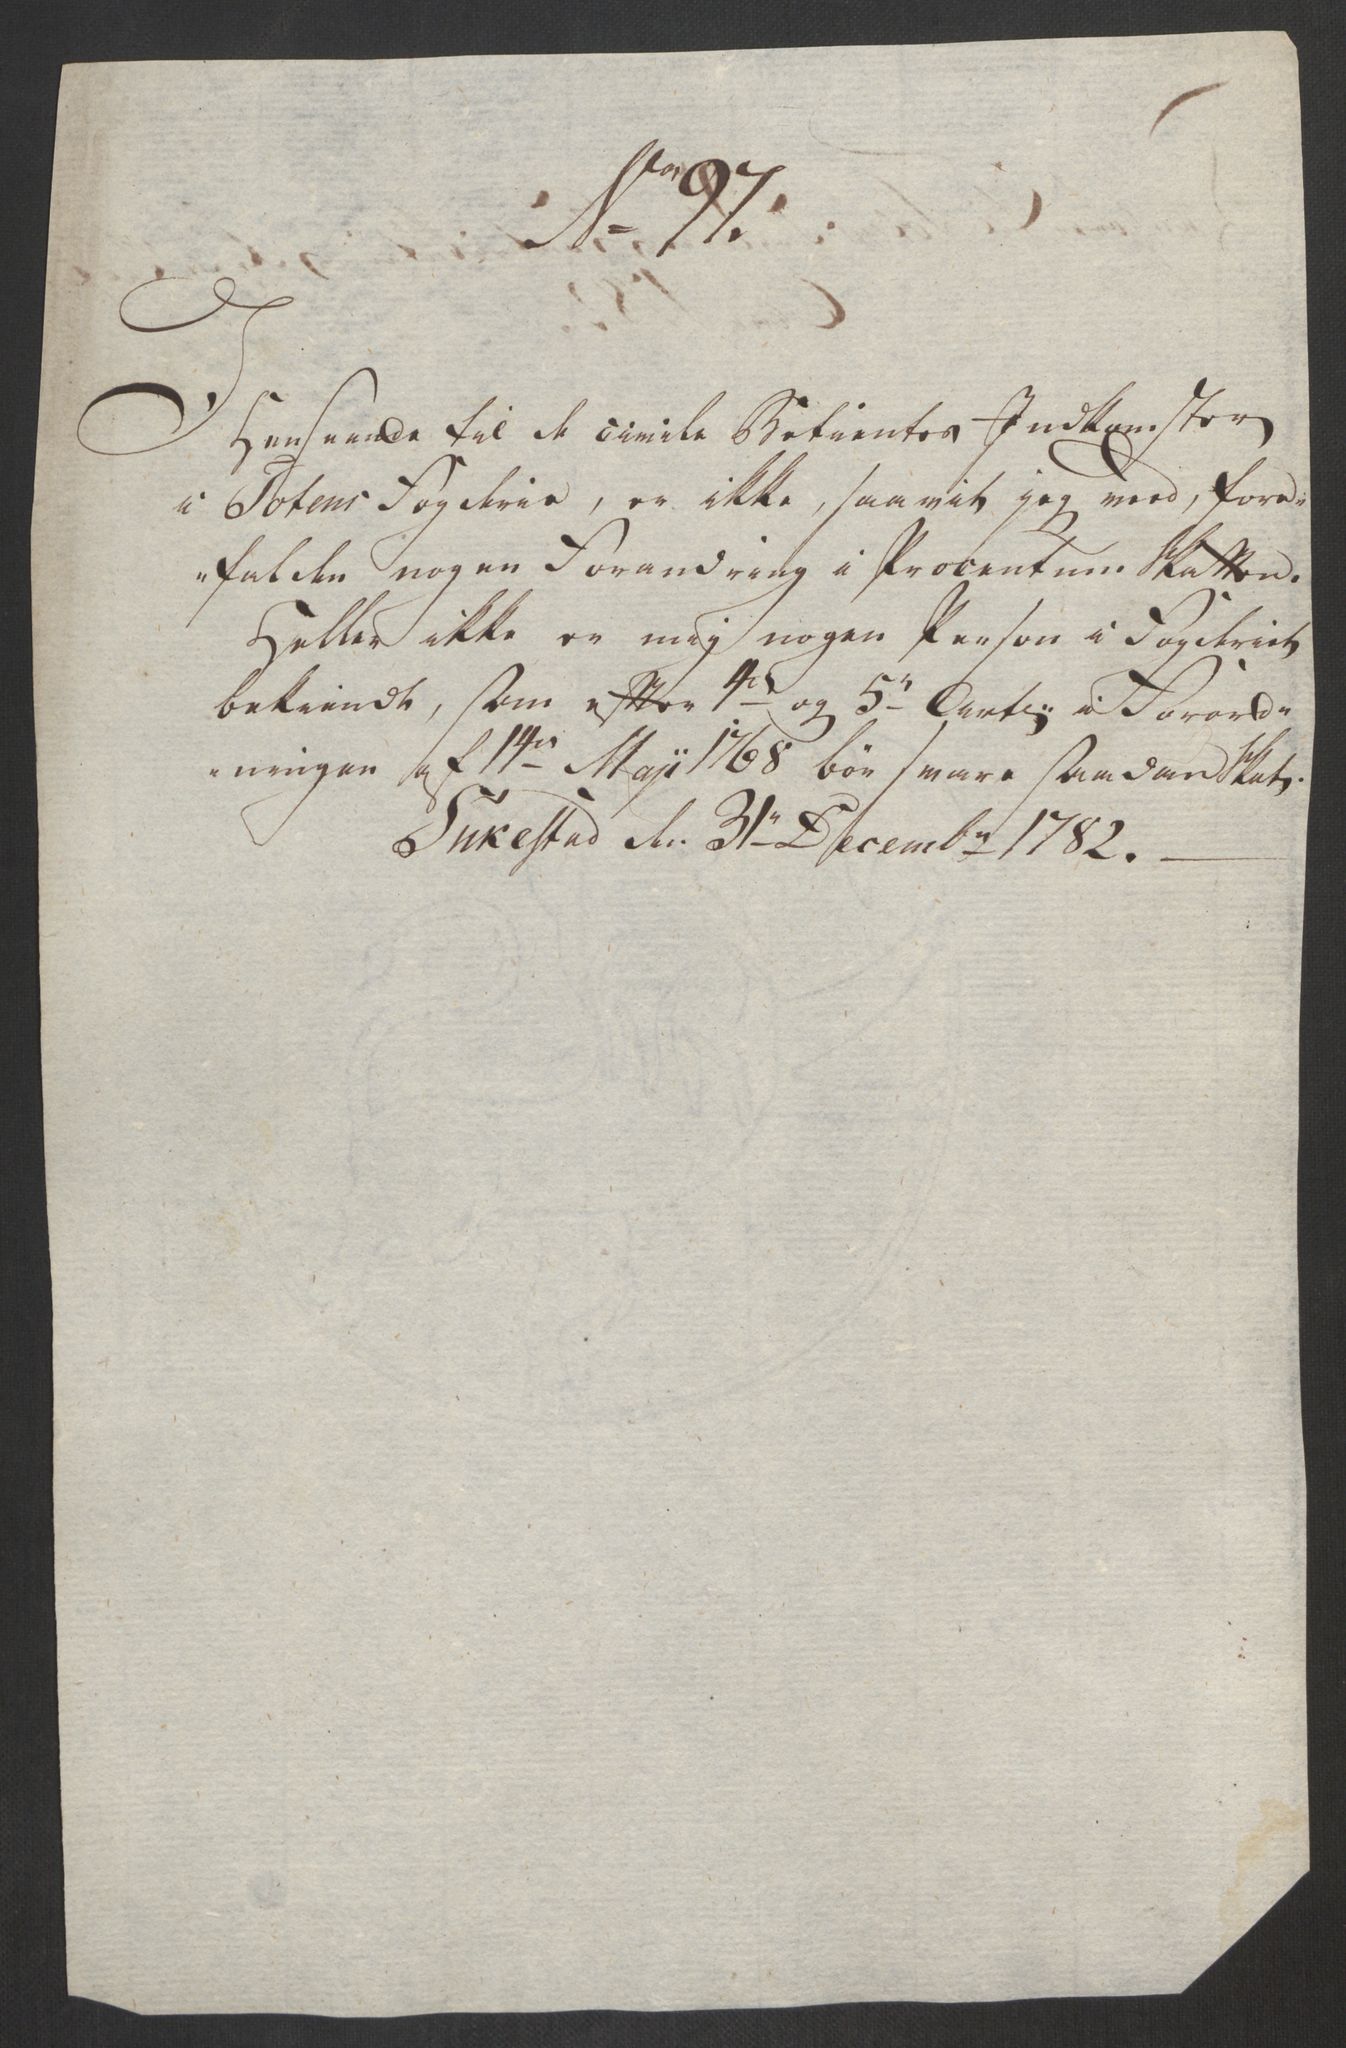 No 97.
I
Henseende til de civile Betientes Indkomster
i Totens Fogderie, er ikke, saavit jeg veed, fore-
"falden nogen Forandring i Procentum Skatten.
Heller ikke er mig nogen Person i Fogderiet
bekiendt, som efter 4de og 5te Art: i Forord-
"ningen af 14de Maji 1768 bör svare saadan Skat.
Sukestad den 31te Decembr 1782.